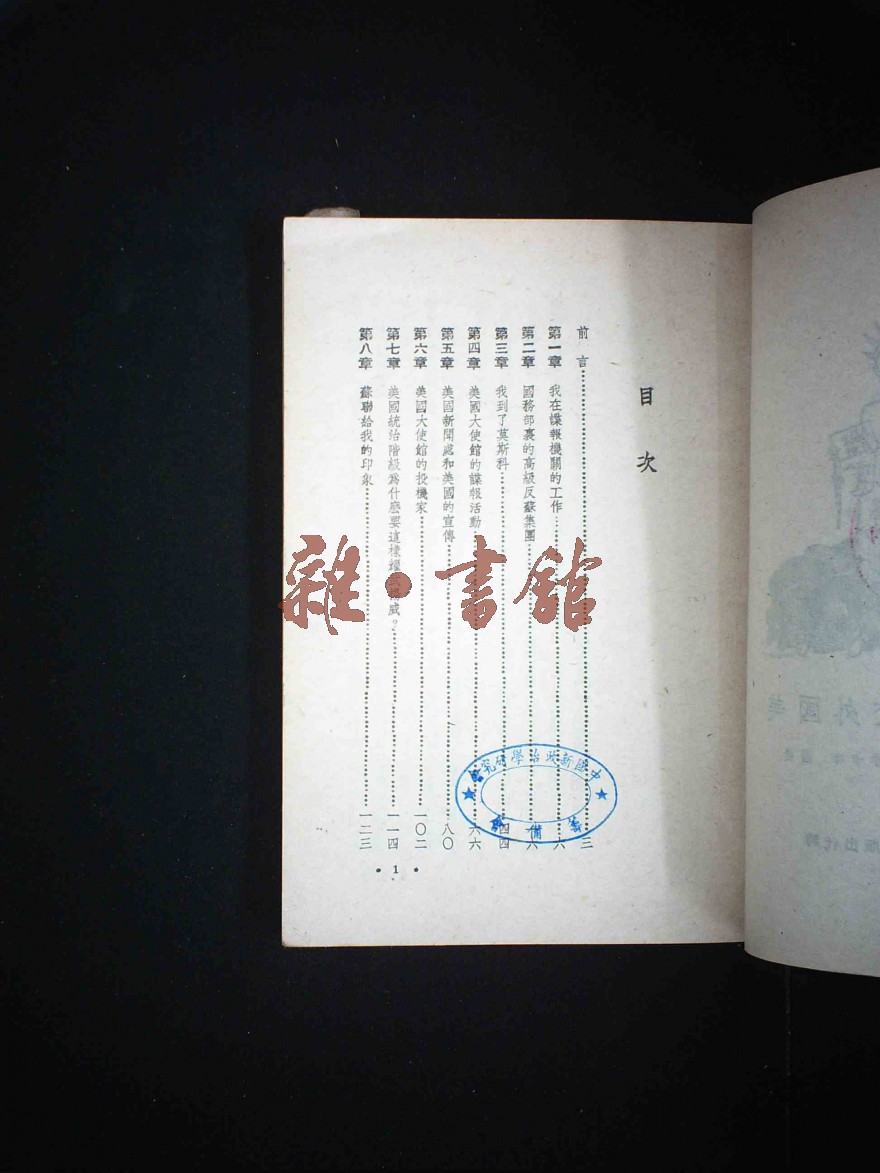 目次
前言……三
第一章 我在諜報機關的工作……六
第二章 國務部裏的高級反蘇集團……一六
第三章 我到了莫斯科……四四
第四章 美國大使館的諜報活動……六六
第五章 美國新聞處和美國的宣傳……八〇
第六章 美國大使館的投機家……一〇二
第七章 美國統治階級爲什麼要這樣耀武揚威？……一一四
第八章 蘇聯給我的印象……一二三
• 1 •
中國新政治學研究會
籌備會
雜·書館